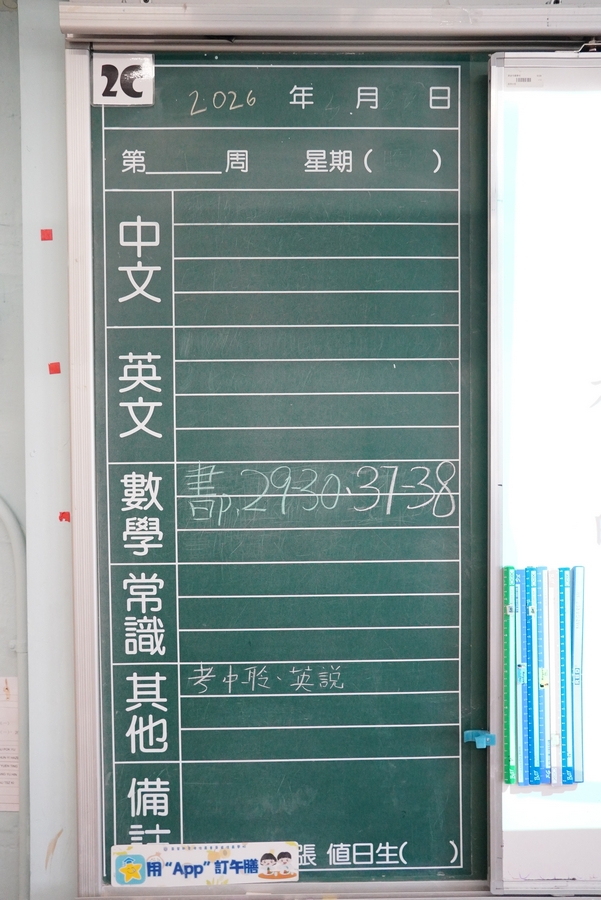 2C
2026 年 月 日
第______周 星期( )
中文
英文
數學 書p.29-30、37-38
常識
其他 考中聆、英説
備註
張 值日生( )
用“App”訂午膳